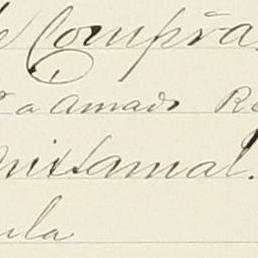 Compra
a Amado
Nixtamal.
ula